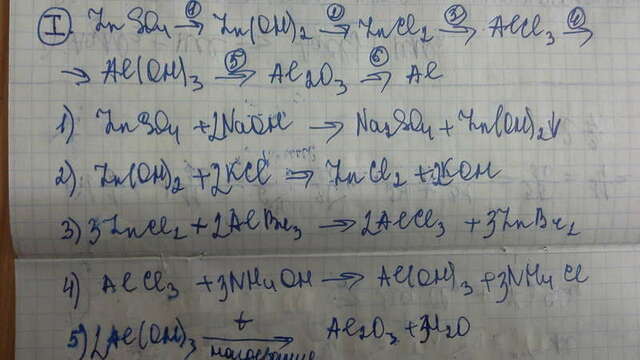 I. ZnSO4 →① Zn(OH)2 →② ZnCl2 →③ AlCl3 →④
→ Al(OH)3 →⑤ Al2O3 →⑥ Al
1) ZnSO4 + 2NaOH → Na2SO4 + Zn(OH)2↓
2) Zn(OH)2 + 2KCl ⇒ ZnCl2 + 2KOH
3) 3ZnCl2 + 2AlBr3 → 2AlCl3 + 3ZnBr2
4) AlCl3 + 3NH4OH → Al(OH)3 + 3NH4Cl
5) 2Al(OH)3 t→ Al2O3 + 3H2O